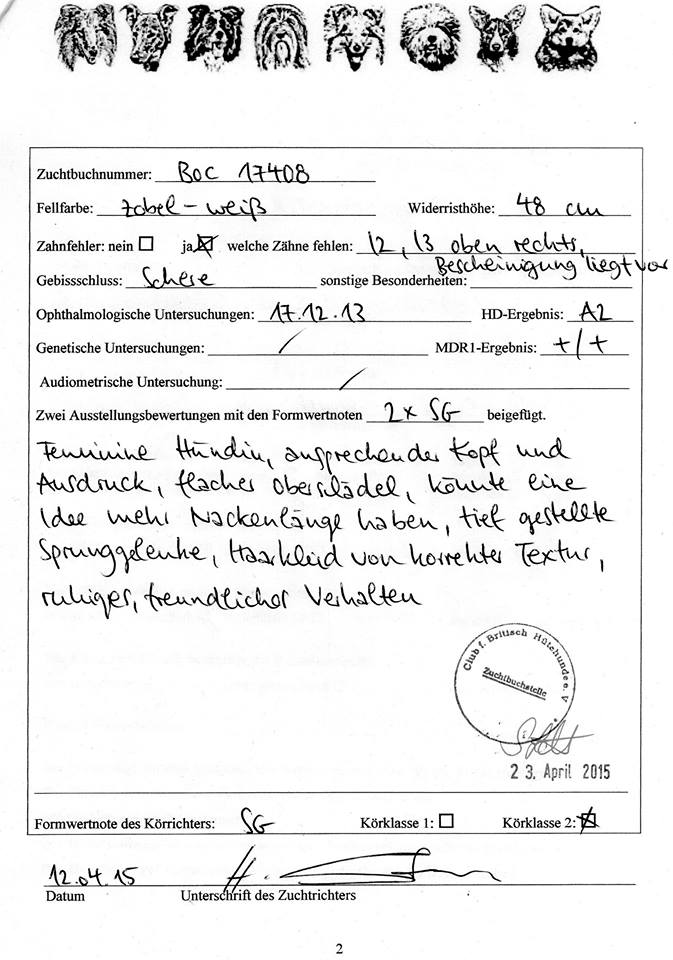 Zuchtbuchnummer: BOC 17408
Fellfarbe: zobel-weiß Widerristhöhe: 48 cm
Zahnfehler: nein ☐ ja ☒ welche Zähne fehlen: 12, 13 oben rechts,
Bescheinigung liegt vor
Gebissschluss: Schere sonstige Besonderheiten:
Ophthalmologische Untersuchungen: 17.12.13 HD-Ergebnis: A2
Genetische Untersuchungen: / MDR1-Ergebnis: +/+
Audiometrische Untersuchung: /
Zwei Ausstellungsbewertungen mit den Formwertnoten 2x SG beigefügt.
Feminine Hündin, ansprechender Kopf und
Ausdruck, flacher Oberschädel, könnte eine
Idee mehr Nackenlänge haben, tief gestellte
Sprunggelenke, Haarkleid von korrekter Textur,
ruhiges, freundliches Verhalten
Club f. Britisch Hütehunde e. V
Zuchtbuchstelle
23. April 2015
Formwertnote des Körrichters: SG Körklasse 1: ☐ Körklasse 2: ☒
12.04.15
Datum Unterschrift des Zuchtrichters
2